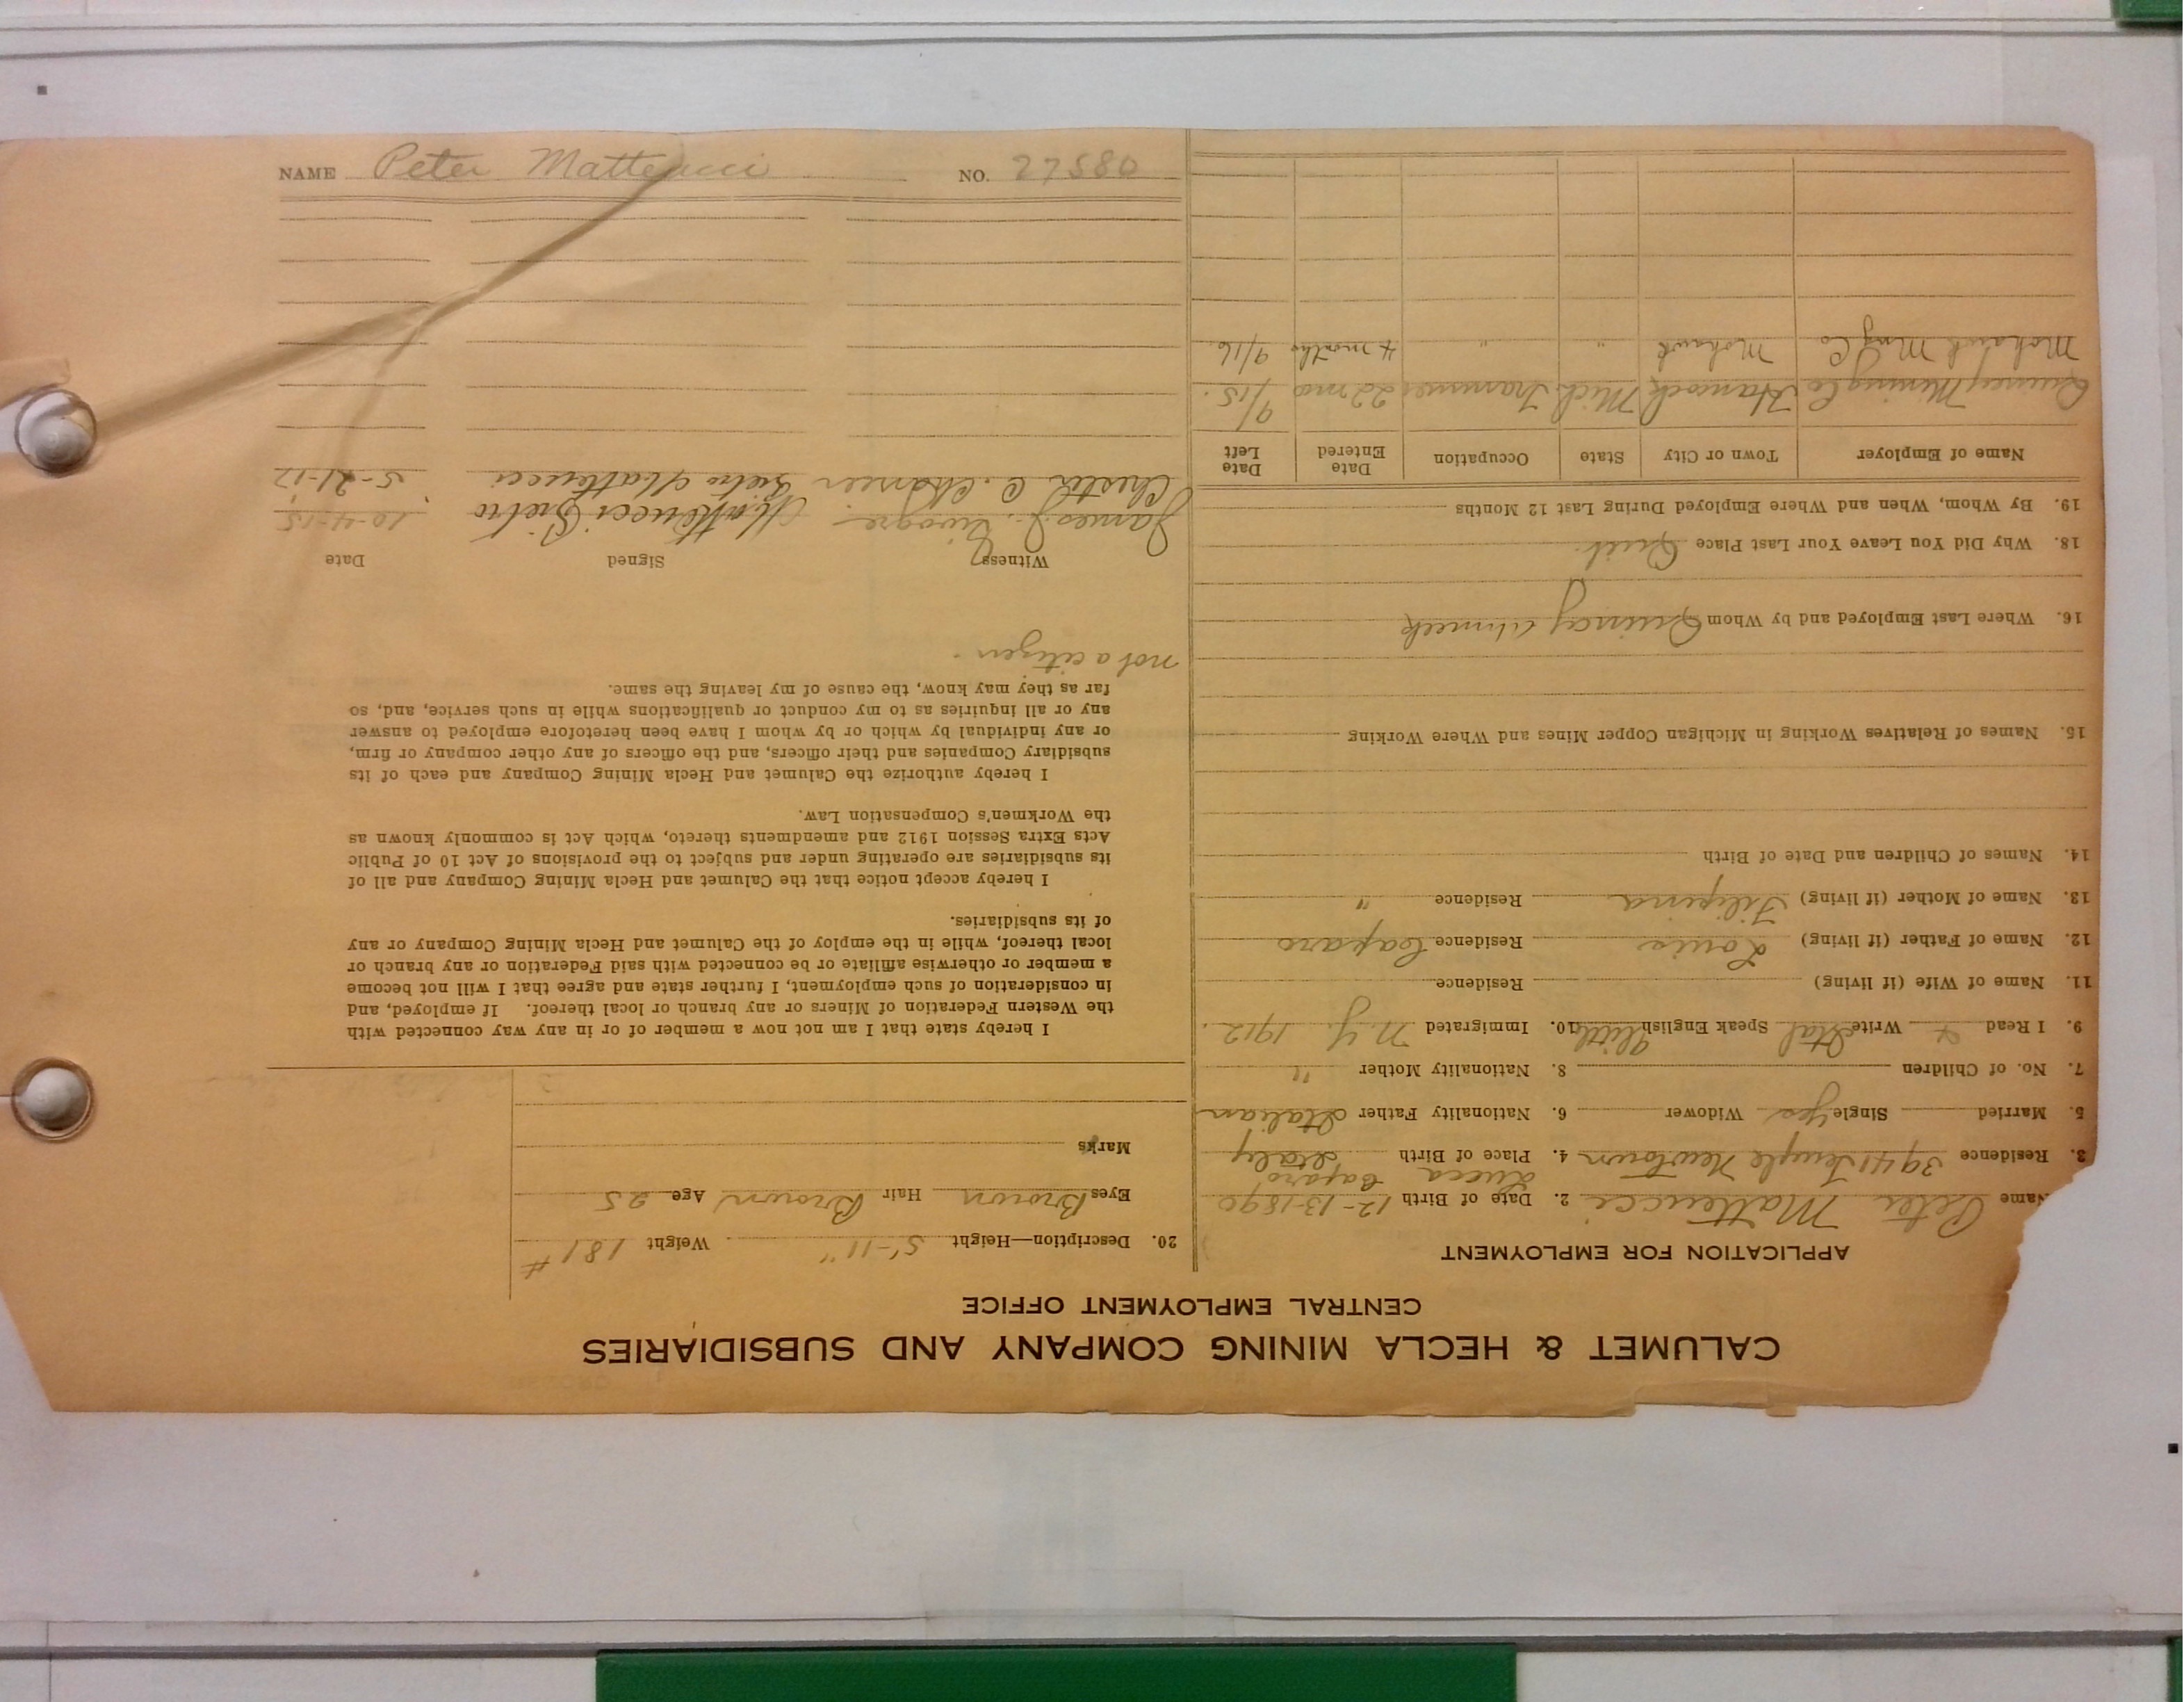 CALUMET & HECLA MINING COMPANY AND SUBSIDIARIES
CENTRAL EMPLOYMENT OFFICE
APPLICATION FOR EMPLOYMENT
Name Peter Matteucci 2. Date of Birth 12-13-1890
Lucca Caparo
3. Residence 3941 Temple Newtown 4. Place of Birth Italy
5. Married Single Yes Widower 6. Nationality Father Italian
7. No. of Children 8. Nationality Mother "
9. I Read + Write Ital Speak English little 10. Immigrated N.Y. 1912.
11. Name of Wife (if living) Residence
12. Name of Father (if living) Louis Residence Caparo
13. Name of Mother (if living) Filipina Residence "
14. Names of Children and Date of Birth
15. Names of Relatives Working in Michigan Copper Mines and Where Working
16. Where Last Employed and by Whom Quincy Ahmeek
18. Why Did You Leave Your Last Place Quit.
19. By Whom, When and Where Employed During Last 12 Months
Name of Employer Town or City State Occupation Date Entered Date Left
Quincy Mining Co Hancock Mich Trammer 22 mo 9/15.
Mohawk Mng Co Mohawk " " 4 months 9/16.
20. Description—Height 5'-11" Weight 181#
Eyes Brown Hair Brown Age 25
Marks
I hereby state that I am not now a member of or in any way connected with
the Western Federation of Miners or any branch or local thereof. If employed, and
in consideration of such employment, I further state and agree that I will not become
a member or otherwise affiliate or be connected with said Federation or any branch or
local thereof, while in the employ of the Calumet and Hecla Mining Company or any
of its subsidiaries.
I hereby accept notice that the Calumet and Hecla Mining Company and all of
its subsidiaries are operating under and subject to the provisions of Act 10 of Public
Acts Extra Session 1912 and amendments thereto, which Act is commonly known as
the Workmen's Compensation Law.
I hereby authorize the Calumet and Hecla Mining Company and each of its
subsidiary Companies and their officers, and the officers of any other company or firm,
or any individual by which or by whom I have been heretofore employed to answer
any or all inquiries as to my conduct or qualifications while in such service, and, so
far as they may know, the cause of my leaving the same.
not a citizen.
Witness Signed Date
James J. Matteucci Pietro 10-4-15
Chester C. Pietro Matteucci 5-21-17
NAME Peter Matteucci NO. 27580